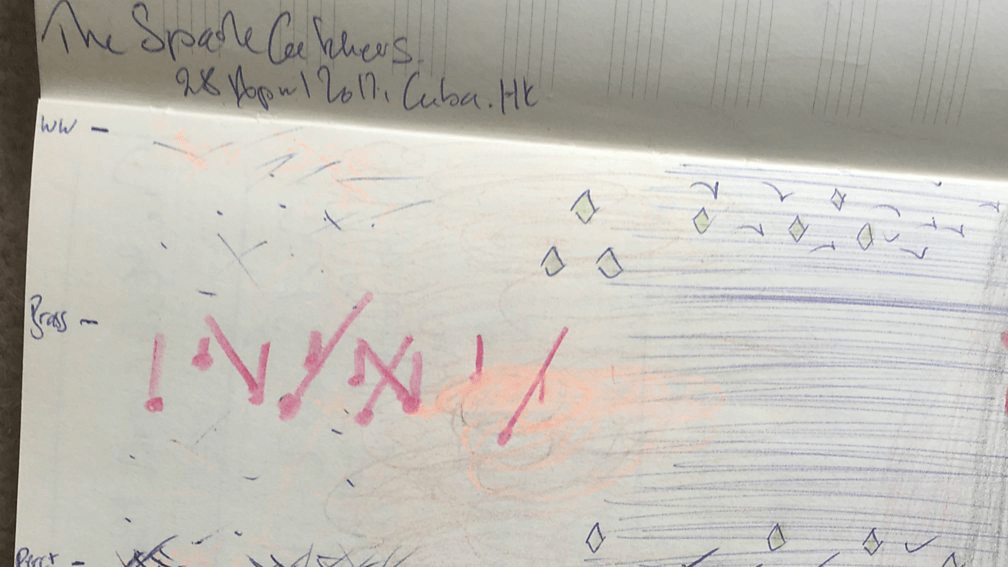 The Spark Catchers.
28 April 2017. Cuba. HK
WW -
Brass -
Perc -